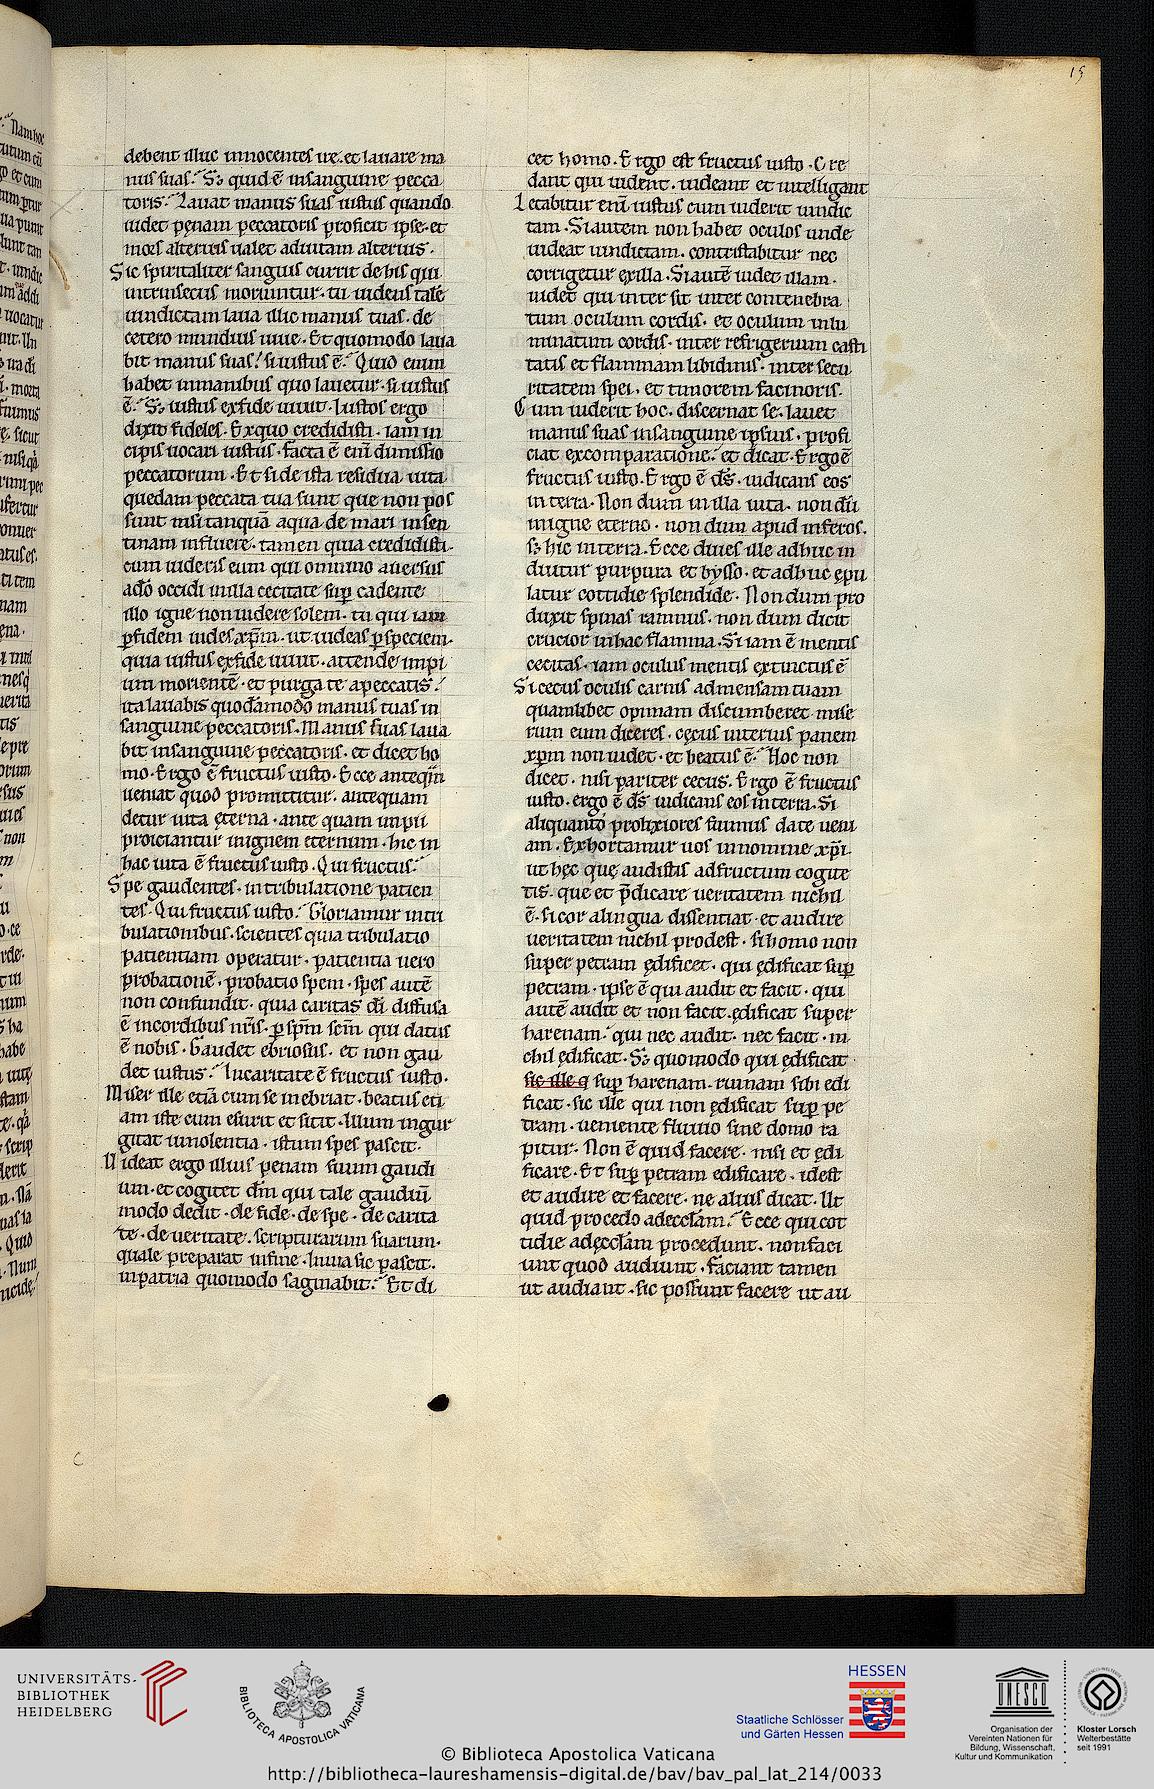 15
debent illuc innocentes ire. et lauare ma
nus suas? Sꝫ quid ē insanguine pecca
toris? Lauat manus suas iustus quando
uidet pęnam peccatoris proficit ipse. et
mors alterius ualet aduitam alterius.
Sic spiritaliter sanguis currit de his qui
intrinsecus moriuntur. tu uidens talē
uindictam laua illic manus tuas. de
cetero mundius uiue. Et quomodo laua
bit manus suas? si iustus ē? Quid enim
habet inmanibus quo lauetur. si iustus
ē? Sꝫ iustus exfide uiuit. Iustos ergo
dixit fideles. Exquo credidisti. iam in
cipis uocari iustus. facta ē enī dimissio
peccatorum. Et side ista residua uita
quedam peccata tua sunt que non pos
sunt nisi tanquā aqua de mari in sen
tinam influere. tamen quia credidisti.
cum uideris eum qui omnino auersus
ado occidi inilla cecitate suꝑ cadente
illo igne non uidere solem. tu qui iam
ꝑfidem uides xp̄m. ut uideas ꝑspeciem.
quia iustus exfide uiuit. attende impi
um morientē. et purga te apeccatis?
ita lauabis quodāmodo manus tuas in
sanguine peccatoris. Manus suas laua
bit insanguine peccatoris. et dicet ho
mo. Ergo ē fructus iusto. Ecce anteqm̄
ueniat quod promittitur. antequam
detur uita ęterna. ante quam impii
proiciantur inignem eternum. hic in
hac uita ē fructus iusto. Qui fructus?
Spe gaudentes. intribulatione patien
tes. Qui fructus iusto? Gloriamur intri
bulationibus. scientes quia tribulatio
patientiam operatur. patientia uero
probationē. probatio spem. spes autē
non confundit. quia caritas di̅ diffusa
ē incordibus nr̄is. ꝑ sp̄m sc̄m qui datus
ē nobis. Gaudet ebriosus. et non gau
det iustus? Incaritate ē fructus iusto.
Miser ille etiā cum se inebriat. beatus eti
am iste cum esurit et sitit. Illum ingur
gitat uinolentia. istum spes pascit.
Uideat ergo illius penam suum gaudi
um. et cogitet dm̄ qui tale gaudiū
modo dedit. de fide. de spe. de carita
te. de ueritate. scripturarum suarum.
quale preparat infine. Inuia sic pascit.
inpatria quomodo saginabit? Et di
cet homo. Ergo est fructus iusto. Cre
dant qui uident. uideant et intelligant
Letabitur eni̅ iustus cum uiderit uindic
tam. Si autem non habet oculos unde
uideat uindictam. contristabitur nec
corrigetur exilla. Si autē uidet illam.
uidet qui inter sit inter contenebra
tum oculum cordis. et oculum inlu
minatum cordis. inter refrigerium casti
tatis et flammam libidinis. inter secu
ritatem spei. et timorem facinoris.
Cum uiderit hoc. discernat se. lauet
manus suas insanguine ipsius. profi
ciat excomparatione. et dicat. Ergo ē
fructus iusto. Ergo ē ds̄. iudicans eos
in terra. Non dum in illa uita. non dū
inigne eterno. non dum apud inferos.
sꝫ hic interra. Ecce diues ille adhuc in
duitur purpura et bysso. et adhuc epu
latur cottidie splendide. Non dum pro
duxit spinas ramnus. non dum dicit
crucior inhac flamma. Si iam ē mentis
cecitas. iam oculus mentis extinctus ē
Si cecus oculis carnis admensam tuam
quamlibet opimam discumberet. mise
rum eum diceres. cęcus interius panem
xp̄m non uidet. et beatus ē? Hoc non
dicet. nisi pariter cecus. Ergo ē fructus
iusto. ergo ē ds̄ iudicans eos in terra. Si
aliquanto prolixiores fuimus date ueni
am. Exhortamur uos innomine xp̄i.
ut hęc quę audistis adfructum cogite
tis. que et p̄dicare ueritatem nichil
ē. si cor alingua dissentiat. et audire
ueritatem nichil prodest. si homo non
super petram ędificet. qui ędificat suꝑ
petram. ipse ē qui audit et facit. qui
autē audit et non facit. ędificat super
harenam. qui nec audit. nec facit. ni
chil ędificat. Sꝫ quomodo qui ędificat
sic ille q suꝑ harenam. ruinam sibi edi
ficat. sic ille qui non ędificat suꝑ pe
tram. ueniente fluuio sine domo ra
pitur. Non ē quid facere. nisi et ędi
ficare. Et suꝑ petram edificare. idest
et audire et facere. ne aliuis dicat. Ut
quid procedo adecclam̄? Ecce qui cot
tidie adęcclam̄ procedunt. nonfaci
unt quod audiunt. faciant tamen
ut audiant. sic possunt facere ut au
UNIVERSITÄTS-
BIBLIOTHEK
HEIDELBERG
BIBLIOTECA APOSTOLICA VATICANA
HESSEN
Staatliche Schlösser
und Gärten Hessen
UNESCO
Organisation der
Vereinten Nationen für
Bildung, Wissenschaft,
Kultur und Kommunikation
Kloster Lorsch
Welterbestätte
seit 1991
© Biblioteca Apostolica Vaticana
http://bibliotheca-laureshamensis-digital.de/bav/bav_pal_lat_214/0033